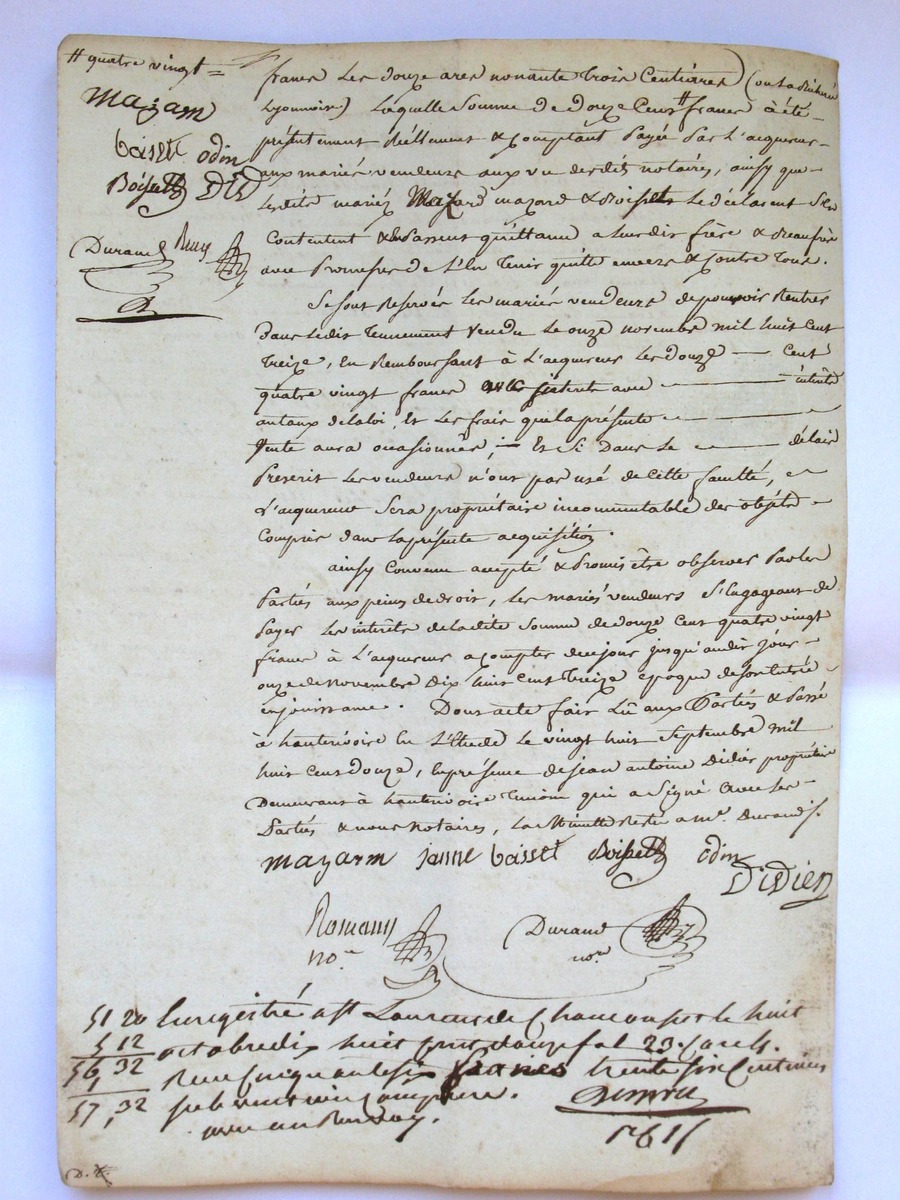 # quatre vingt =
Mazarm
basset odin
Boissett DID
Durand
francs Les douze ares nonante trois Centiares)
Lyonnois) Laquelle Somme De douze Cens # francs à été
présentement Réellement & Comptant payée par L'acquereur
aux mariés vendeurs aux vu desdits notaires, ainsy que
Lesdits mariés Mazard mazard & Le déclarent S'en
Contentent & Passent quittance a leurdit frère & Beaufrère
avec Promesse de L'En Tenir quitte envers & Contre Tous.
Se sont Reservés Les mariés vendeurs de pouvoir Rentrer
Dans Ledit Tennement vendu Le onze novembre mil huit cent
treize, En Remboursant à L'acquereur Les douze — Cent
quatre vingt francs avec — intérêts
au taux de la loi, Et Les frais que la présente —
Vente aura occasionnés ; — Et Si Dans Le — délais
Prescrit Les vendeurs n'ont pas usé de Cette faculté,
L'acquereur Sera propriétaire incommutable des objets
Compris dans la présente acquisition.
ainsy Convenu accepté & Promis être observer Par les
Parties aux peines de droit, Les mariés vendeurs S'Engageant de
Payer Les intérêts de Ladite Somme de douze Cent quatre vingt
francs à L'acquereur a compter de ce jour jusqu'audit jour
onze de novembre Dix huit Cent Treize époque de son Entrée
en jouissance. Dont acte fait Lû aux Parties & Passé
à hauterivoire En L'Etude Le vingt huit Septembre mil
huit Cent douze, En présence de jean antoine Didier propriétaire
Demeurant à hauterivoire Temoin qui a Signé avec Les
Parties & nous Notaires, La Minutte Resté a Mr. Durand/.
mazarm janne basset Boissett odin
DiDier
Durand
nore
51 20 Enregistré a St Laurent de Chamousset le huit
5 12 octobre dix huit cent douze fol 23.
56, 32 Reçu cinquante six francs trente six Centimes
1
57, 32